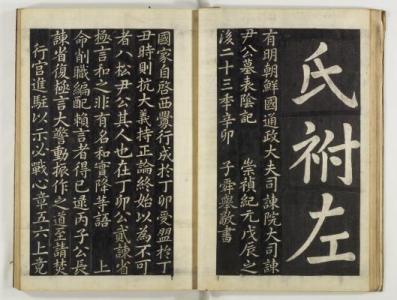 氏祔左
有明朝鮮國通政大夫司諫院大司諫
尹公墓表陰記 崇禎紀元戊辰之
後二十三季辛卯 子舜擧敬書
國家自啓西釁行成於丁卯受盟於丁
丑時則抗大義持正論終始以為不可
者八松尹公其人也在丁卯公貳諫省
極言和之非有名和實降等語 上
命削職編配賴言者得已逮丙子公長
諫省復極言大警動振作之道至請焚
行宮進駐以示必戰心章五六上竟